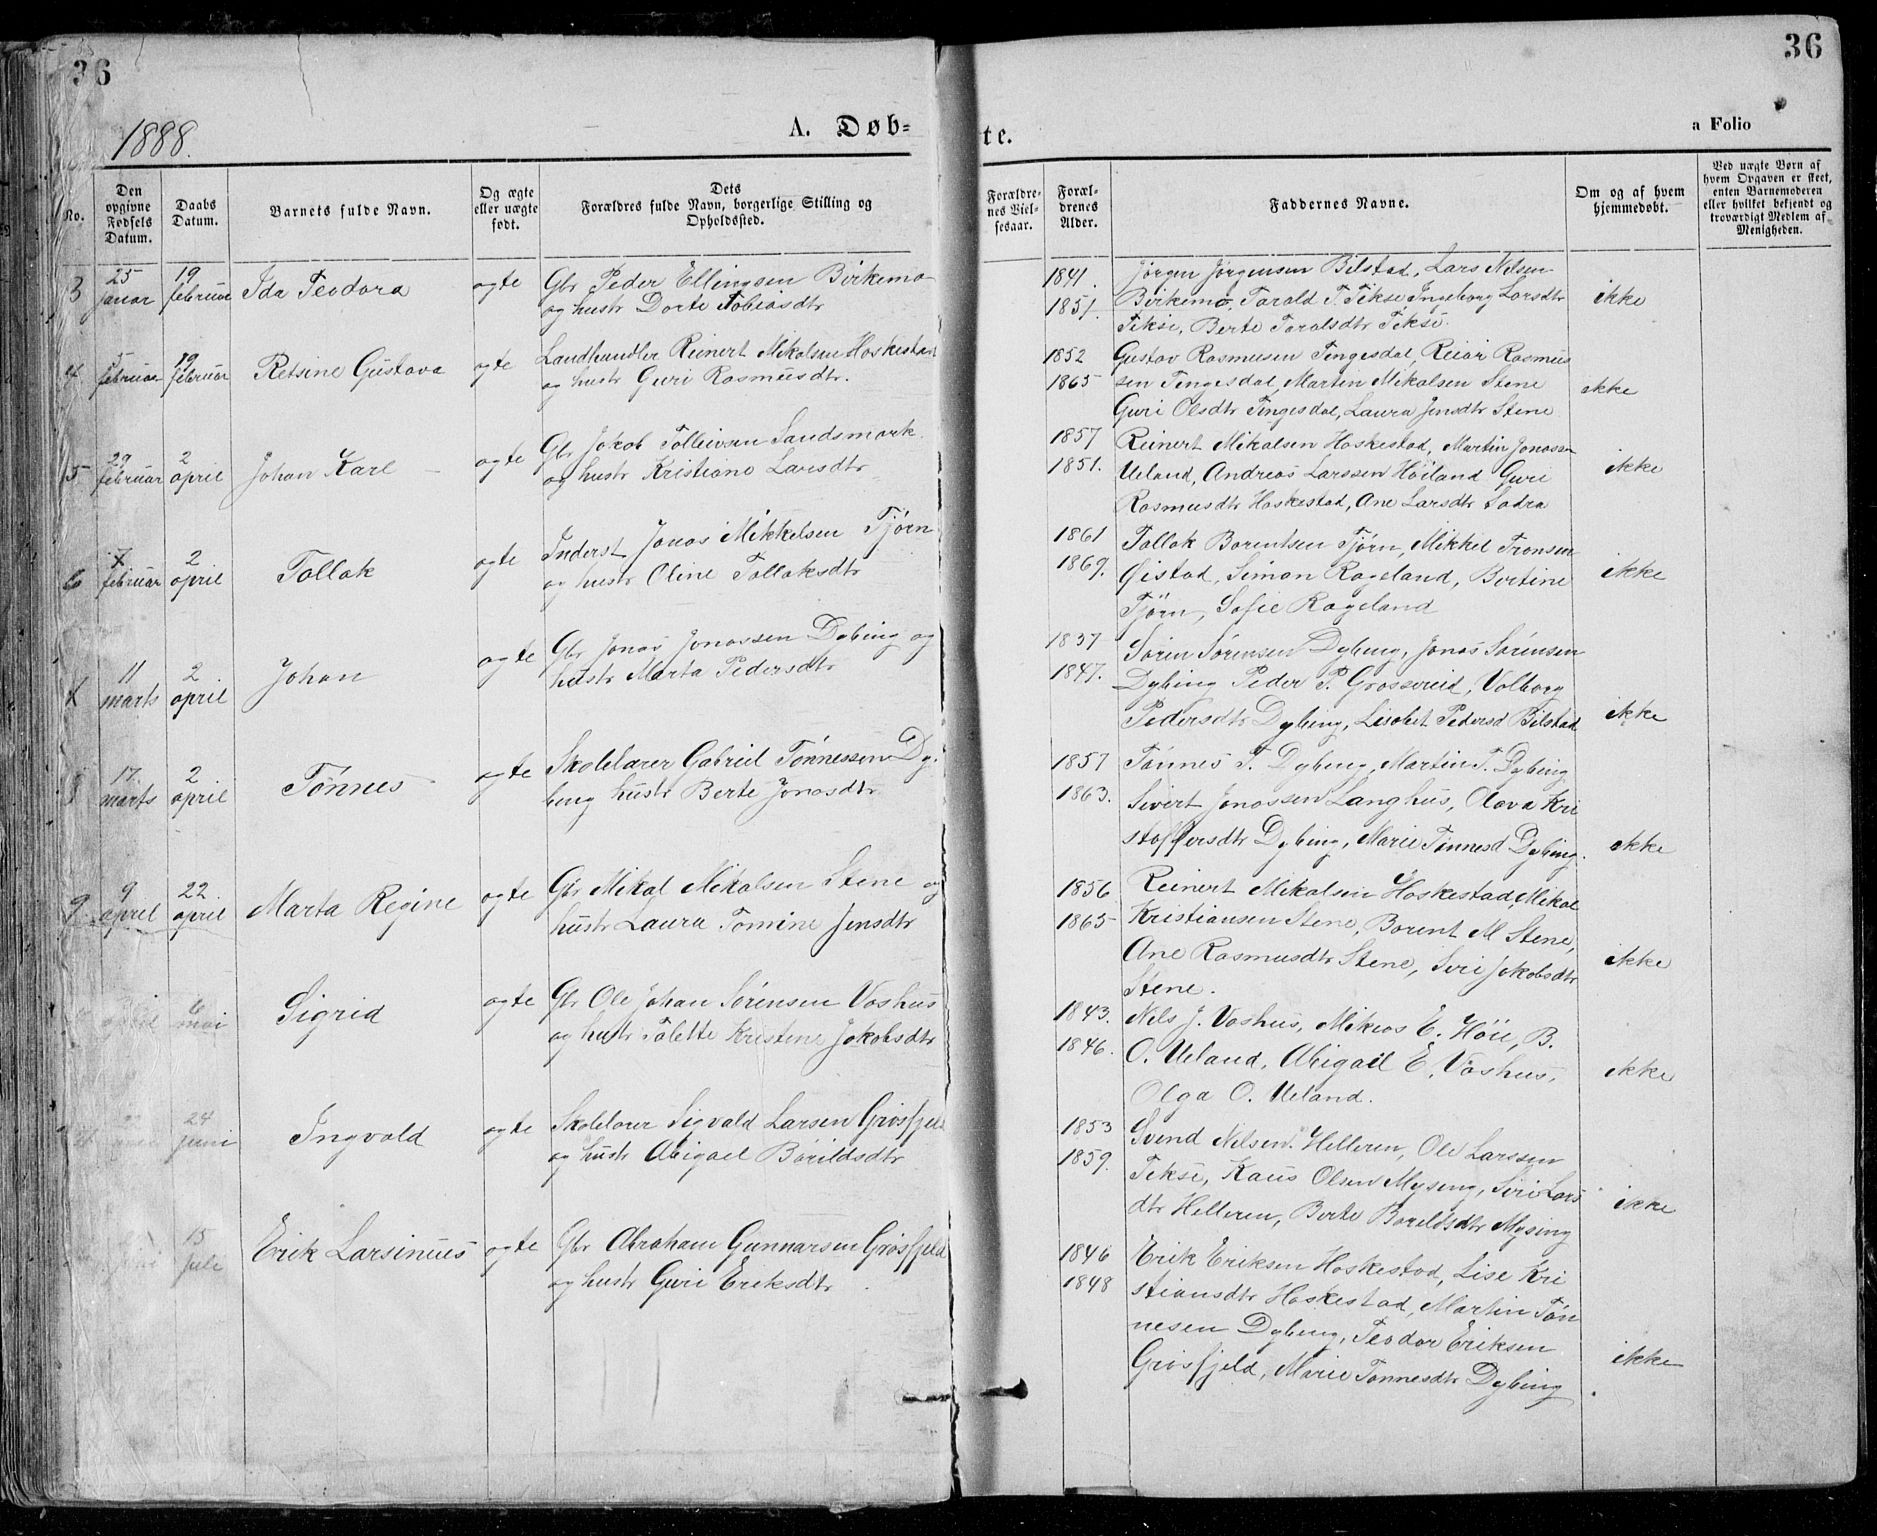 36
36
1888.
A. Døb-
te.
a Folio
No.
Den opgivne Fødsels Datum.
Daabs Datum.
Barnets fulde Navn.
Og ægte eller uægte født.
Dets Forældres fulde Navn, borgerlige Stilling og Opholdssted.
Forældrenes Vielsesaar.
Forældrenes Alder.
Faddernes Navne.
Om og af hvem hjemmedøbt.
Ved uægte Børn af hvem Opgaven er skeet, enten Barnemoderen eller hvilket bekjendt og troværdigt Medlem af Menigheden.
3 25 januar 19 februar Ida Teodora ogte Gbr Peder Ellingsen Birkemo
og hustr Dorte Tobiasdtr
1841. Jørgen Jørgensen Bilstad, Lars Nilsen
1851. Birkemo, Tarald T. Tekse Ingeborg Larsdtr
Tekse, Berte Taralsdtr Tekse.
ikke
4 5 februar 19 februar Retsine Gustava ogte Landhandler Reinert Mikalsen Hoskestad
og hustr Guri Rasmusdtr.
1852 Gustav Rasmusen Tingesdal, Reiar Rasmus
1865 sen Tingesdal, Martin Mikalsen Stene
Guri Olsdtr Tingesdal, Laura Jensdtr Stene
ikke
5 29 februar 2 april Johan Karl ogte Gbr Jakob Tolleivsen Sandsmark
og hustr Kristiane Larsdtr
1857 Reinert Mikalsen Hoskestad, Martin Jonassen
1851. Ueland, Andreas Larssen Høiland Guri
Rasmusdtr Hoskestad, Ane Larsdtr Ladra
ikke
6 7 februar 2 april Tollak ogte Inderst Jonas Mikkelsen Tjørn
og hustr Oline Tollaksdtr
1861 Tollak Borentsen Tjørn, Mikkel Tronsen
1869. Øistad, Simon Rageland, Bertine
Tjørn, Sofie Rageland
ikke
7 11 marts 2 april Johan ogte Gbr Jonas Jonassen Dybing og
hustr Marta Pedersdtr
1837 Søren Sørensen Dybing, Jonas Sørensen
1847. Dybing Peder P. Grossereid, Volborg
Pedersdtr Dybing, Lisabet Pedersd Bilstad
ikke
8 17 marts 2 april Tønnes ogte Skolelærer Gabriel Tønnessen Dy-
bing hustr Berte Jonasdtr
1857 Tønnes T. Dybing, Martin T. Dybing
1863. Sivert Jonassen Langhus, Olava Kri
stoffersdtr Dybing, Marie Tønnesd Dybing.
ikke
9 9 april 22 april Marta Regine ogte Gbr Mikal Mikalsen Stene og
hustr Laura Tomine Jensdtr
1856 Reinert Mikalsen Hoskestad, Mikal
1865 Kristiansen Stene, Borent M Stene,
Ane Rasmusdtr Stene, Siri Jakobsdtr
Stene.
ikke
april 6 mai Sigrid ogte Gbr Ole Johan Sørensen Voshus
og hustr Talette Kristine Jakobsdtr
1843. Nils J. Voshus, Mikias E. Høie, B.
1846. O. Ueland, Abigael E. Voshus,
Olga O. Ueland.
ikke
24 juni Ingvald ogte Skolelærer Sigvald Larsen Grøsfjeld
og hustr Abigael Børildsdtr
1853 Svend Nilsen Helleren, Ole Larssen
1859. Tekse, Kaus Olsen Mysing, Siri Lars
dtr Helleren, Berte Børildsdtr Mysing
ikke
15 juli Erik Larsinius ogte Gbr Abraham Gunnarsen Grøsfjeld
og hustr Guri Eriksdtr
1846 Erik Eriksen Hoskestad, Lise Kri
1848 stiansdtr Hoskestad, Martin Tøn
nesen Dybing, Teodor Eriksen
Grøsfjeld, Marie Tønnesdtr Dybing
ikke